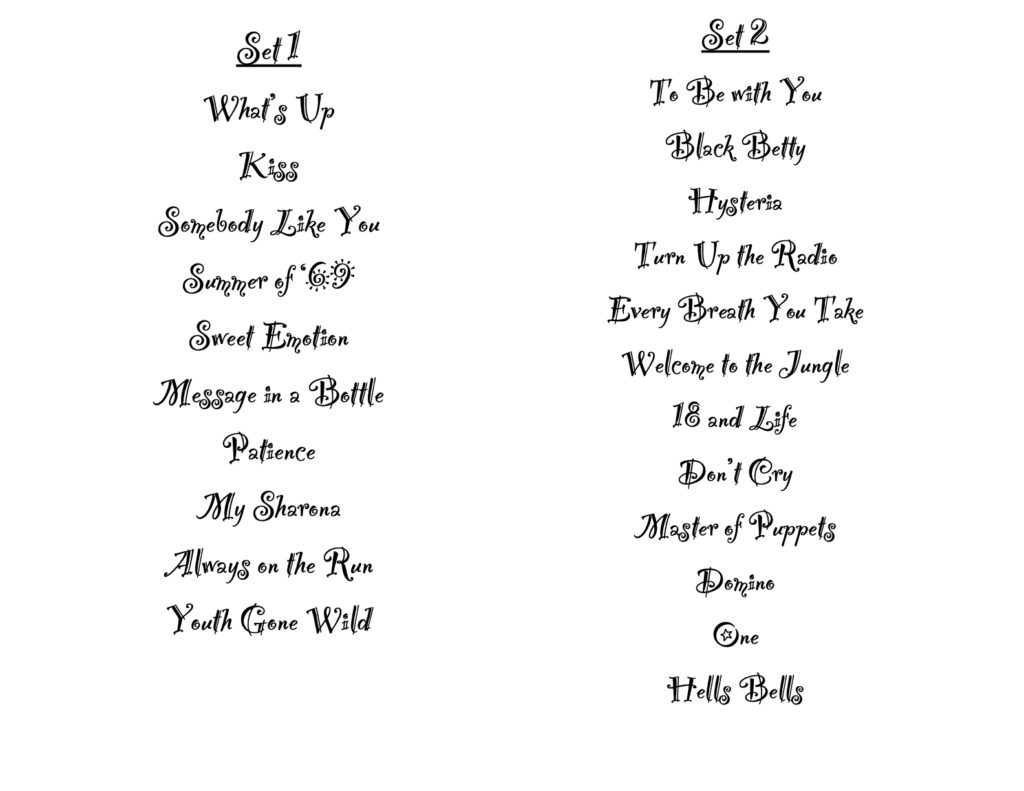 Set 1
What's Up
Kiss
Somebody Like You
Summer of '69
Sweet Emotion
Message in a Bottle
Patience
My Sharona
Always on the Run
Youth Gone Wild
Set 2
To Be with You
Black Betty
Hysteria
Turn Up the Radio
Every Breath You Take
Welcome to the Jungle
18 and Life
Don't Cry
Master of Puppets
Domino
One
Hells Bells